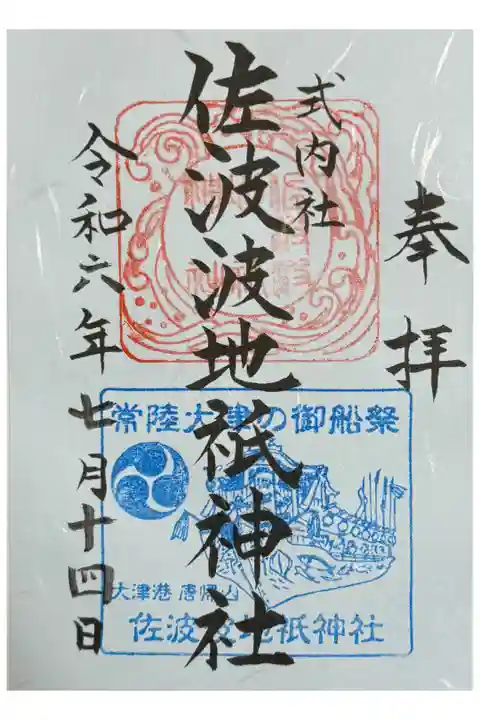 奉拝
式内社
佐波波地祇神社
令和六年七月十四日
常陸大津の御船祭
大津港 唐帰山
佐波波地祇神社